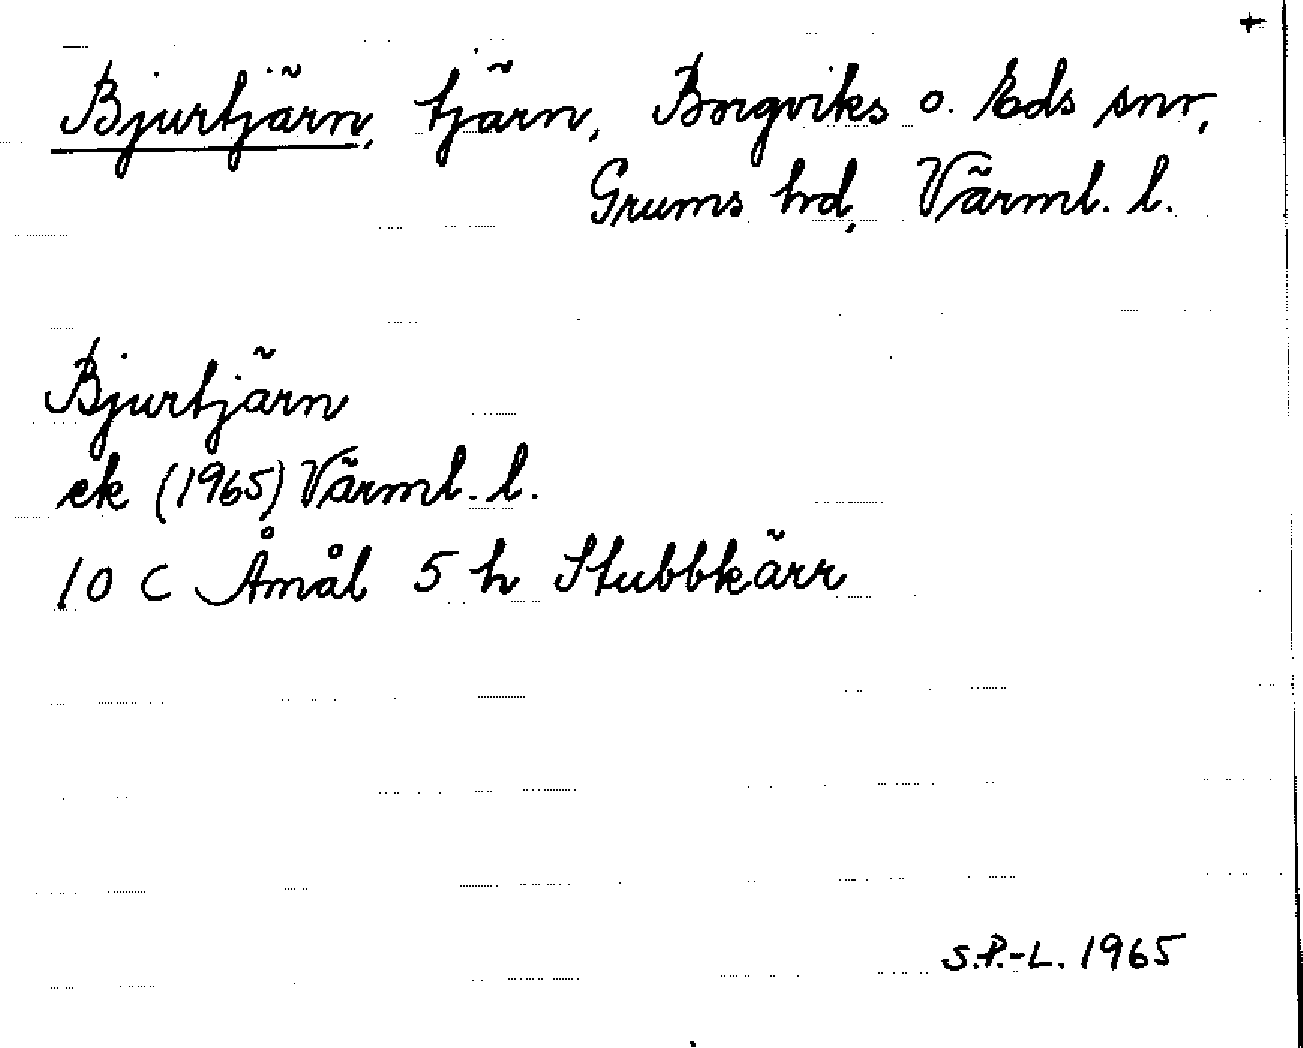 +
Bjurtjärn, tjärn, Borgviks o. Eds snr,
Grums hd, Värml. l.
Bjurtjärn
ek (1965) Värml. l.
10 C Åmål 5 h Stubbkärr
S.P.-L. 1965